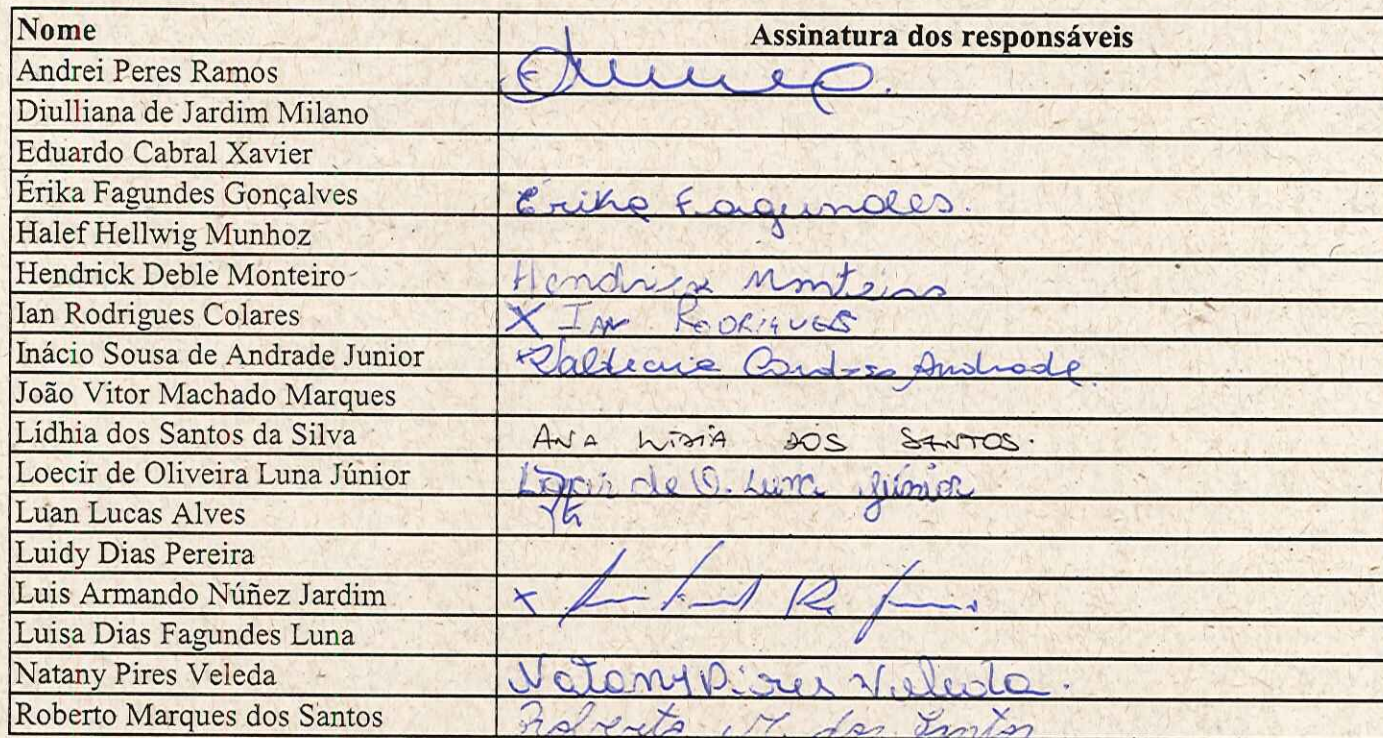 Nome Assinatura dos responsáveis
Andrei Peres Ramos
Diulliana de Jardim Milano
Eduardo Cabral Xavier
Érika Fagundes Gonçalves Erika Fagundes.
Halef Hellwig Munhoz
Hendrick Deble Monteiro Hendrick Monteiro
Ian Rodrigues Colares X IAN RODRIGUES
Inácio Sousa de Andrade Junior Andrade.
João Vitor Machado Marques
Lídhia dos Santos da Silva ANA DOS SANTOS.
Loecir de Oliveira Luna Júnior de O. Luna Júnior
Luan Lucas Alves
Luidy Dias Pereira
Luis Armando Núñez Jardim x
Luisa Dias Fagundes Luna
Natany Pires Veleda Natany Pires Veleda.
Roberto Marques dos Santos Roberto M. dos Santos